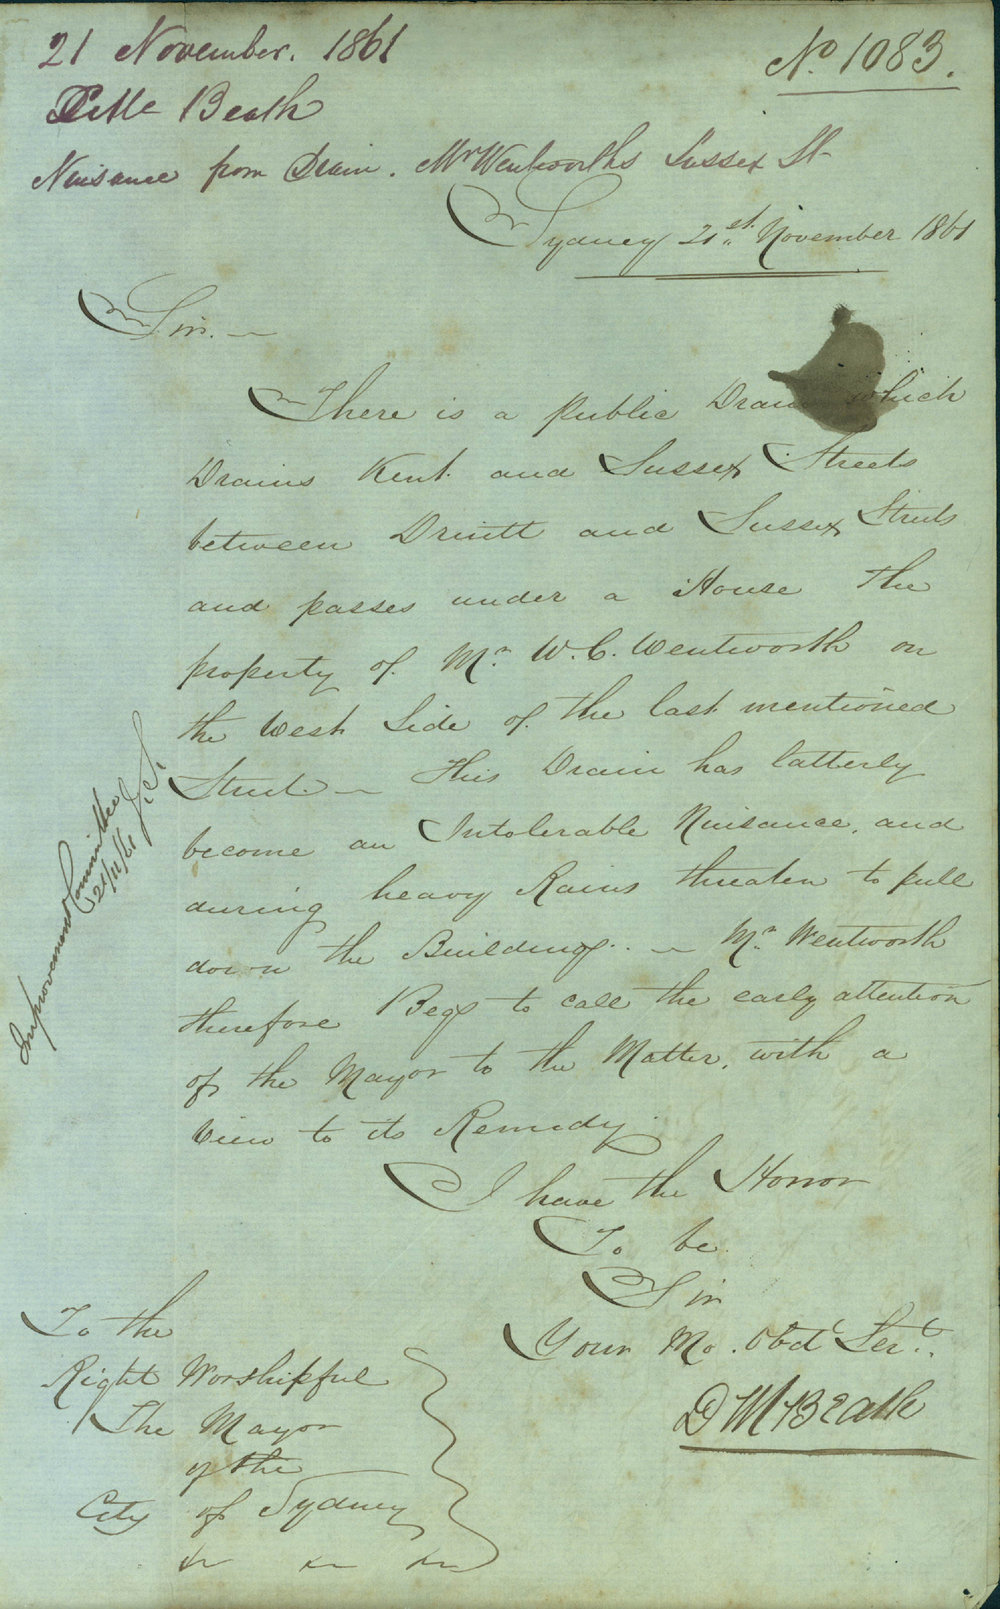 21 November. 1861
No. 1083.
D McBeath
Nuisance from Drain. Mr Wentworths Sussex St
Sydney 21st. November 1861
Sir. —
There is a public Drain which
Drains Kent and Sussex Streets
between Druitt and Sussex Streets
and passes under a House the
property of Mr. W. C. Wentworth on
the West Side of the last mentioned
Street — This Drain has latterly
become an Intolerable Nuisance, and
during heavy Rains threaten to pull
down the Building. — Mr. Wentworth
therefore Begs to call the early attention
of the Mayor to the Matter, with a
View to its Remedy
I have the Honor
To be
Sir
Your Mo. Obdt Sert.
D McBeath
To the
Right Worshipful
The Mayor
of the
City of Sydney
Improvement Committee
21/11/61